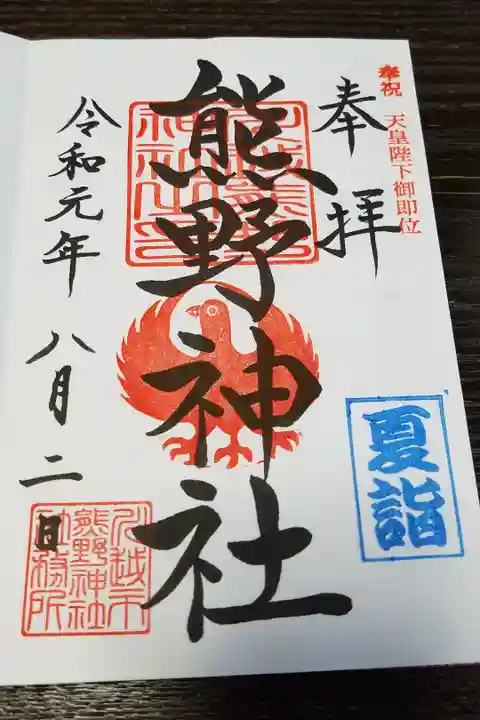 奉祝 天皇陛下御即位
奉拝
夏詣
熊野神社
令和元年 八月二日
川越市
熊野神社
社務所